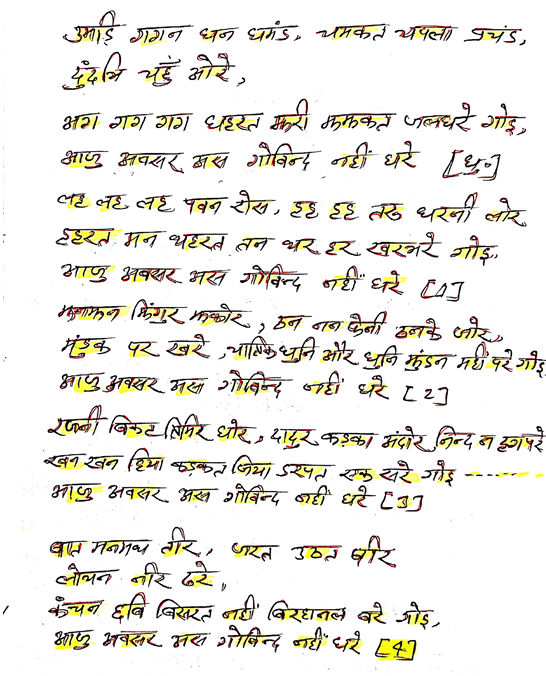 उमड़ि गगन घन घमंड, चमकत चपला प्रचंड,
दुंदभि चहुँ ओरे,
अग गग गग घहरत झरी झमकत जलधरे गोइ,
आजु अवसर अस गोविन्द नहीं घरे [धु॰]
लह लह लह पवन रोस, हह हह तरु धरनी लोर
हहरत मन थहरत तन थर हर खरभरे गोइ,
आजु अवसर अस गोविन्द नहीं घरे [1]
झनाझन झिंगुर झकोर, ठन नन ठेनी ठनके जोर,
मंडुक पर खरे, चात्रिक धुनि और धुनि झुंडन महीं परे गोइ
आजु अवसर अस गोविन्द नहीं घरे [2]
रजनी बिकट तिमिर घोर, दादुर कड़का मंदोर निन्द न द्दगपरे
खन खन हिया कड़कत जिया डरपत एक सरे गोइ --------
आजु अवसर अस गोविन्द नहीं घरे [3]
बात मनमथ तीर, जरत उठत पीर
लोचन नीर ढरे,
कंचन छवि बिसरत नहीं बिरहानल बरे गोइ,
आजु अवसर अस गोविन्द नहीं घरे [4]